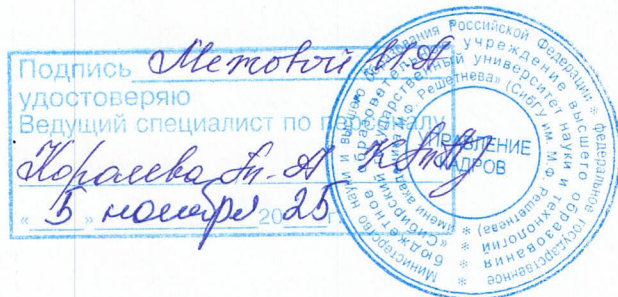 Подпись Метовой И.А
удостоверяю
Ведущий специалист по персоналу
Королева
« 5 » ноября 20 25 г.
УПРАВЛЕНИЕ
КАДРОВ
Министерство науки и высшего образования Российской Федерации * федеральное государственное
бюджетное образовательное учреждение высшего образования
«Сибирский государственный университет науки и технологий
имени академика М.Ф. Решетнева» (СибГУ им. М.Ф. Решетнева)